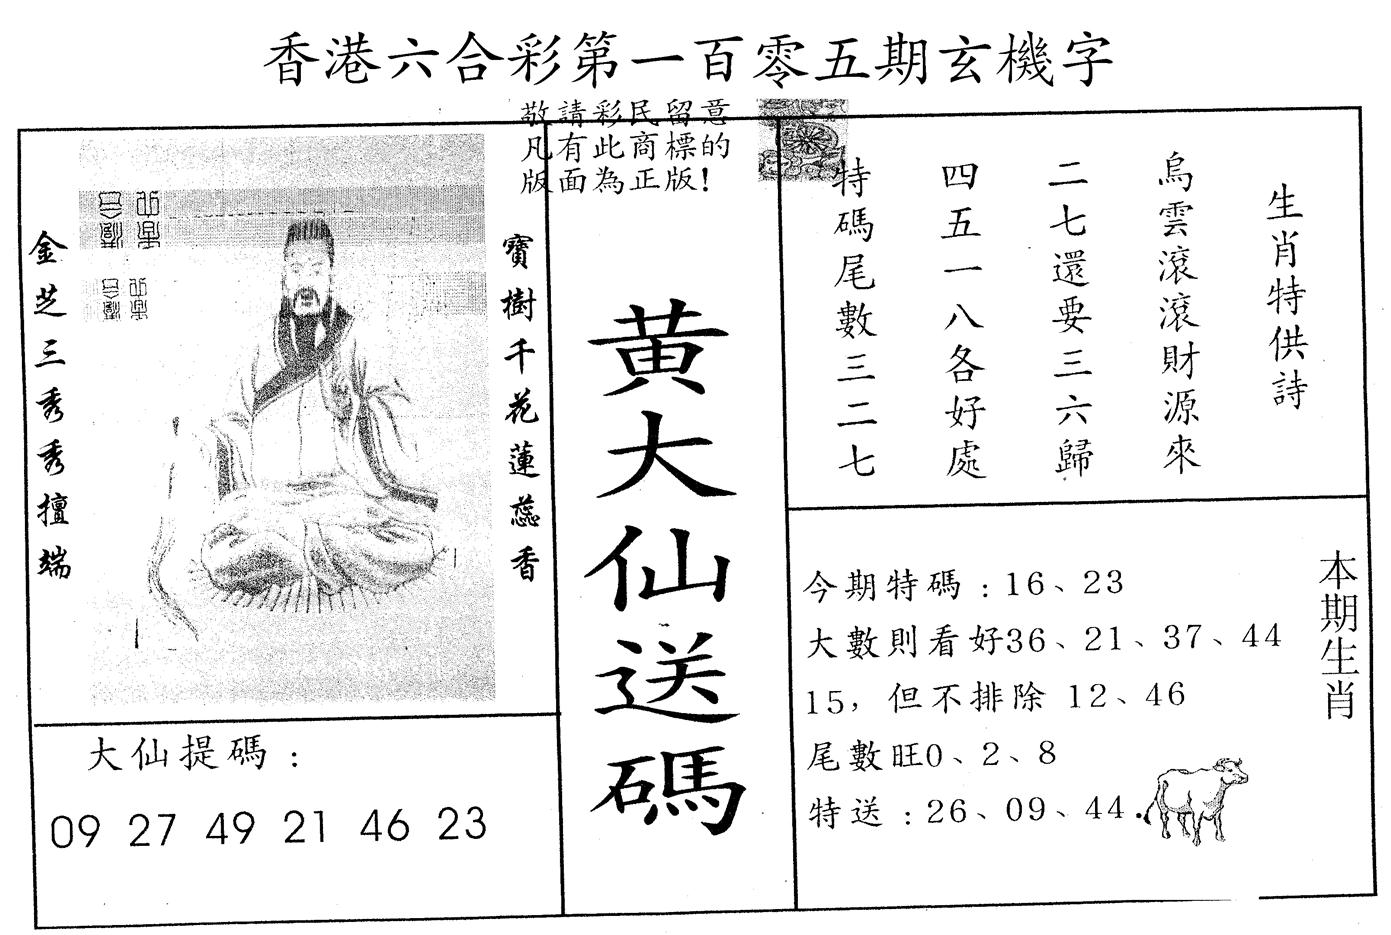 香港六合彩第一百零五期玄機字
敬請彩民留意
凡有此商標的
版面為正版!
生肖特供詩
烏雲滾滾財源來
二七還要三六歸
四五一八各好處
特碼尾數三二七
黃大仙送碼
寶樹千花蓮蕊香
金芝三秀秀擅端
大仙提碼：
09 27 49 21 46 23
本期生肖
今期特碼：16、23
大數則看好36、21、37、44
15，但不排除 12、46
尾數旺0、2、8
特送：26、09、44.